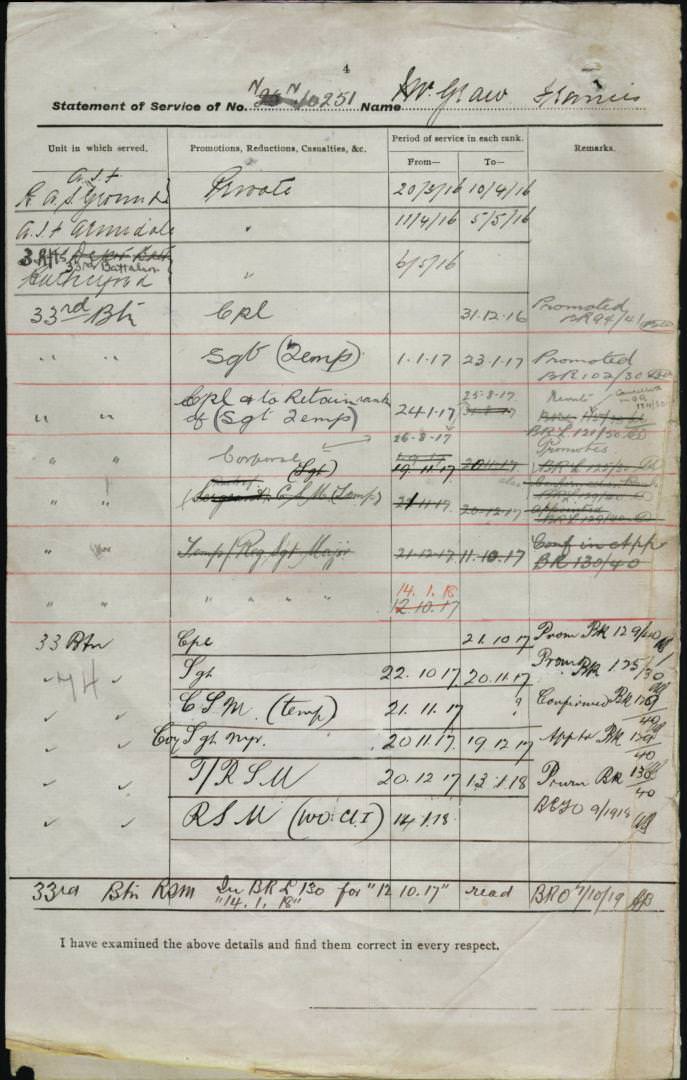 4
Statement of Service of No. N10251 Name McGraw Francis
Unit in which served. Promotions, Reductions, Casualties, &c. Period of service in each rank. Remarks.
From— To—
A.I.F
R.A.S. Ground Private 20/3/16 10/4/16
A.I.F Armidale " 11/4/16 5/5/16
33rd Battalion
Rutherford " 6/5/16
33rd Btn Cpl 31.12.16 Promoted
BR 94/41
" " Sgt (Temp) 1.1.17 23.1.17 Promoted
BR 102/30
" " Cpl & to Retain rank
of (Sgt Temp) 24.1.17 25.8.17
31.8.17
BRL 121/50
" " Corporal (Sgt) 26.8.17
1.9.15
19.11.17 20.11.17 Promoted
BRL 125/30
" " Sergeant C.S.M (Temp) 21.11.17 20.12.17 BRL 129/40
appointed
BRL 129/40
" " Temp/Reg. Sgt. Major 21.12.17 11.10.17 Conf in App
BR 130/40
" " " " " " 14.1.18
12.10.17
33 Btn Cpl 21.10.17 Prom BR 129/40
" " Sgt 22.10.17 20.11.17 Prom BR 125/30
74
" " C S M. (temp) 21.11.17 ? Confirmed BR 129/40
" " Coy Sgt Myr. 20.11.17. 19 12 17 Appt BR 129/40
" " T/R S M 20.12 17 13.1.18 Prom BR 130/40
" " R S M (WO. Cl. I) 14.1.18 BRO 9/1919
33rd Btn RSM In BRL 130 for "12 10.17" read
"14. 1. 18" BRO 7/10/19
I have examined the above details and find them correct in every respect.